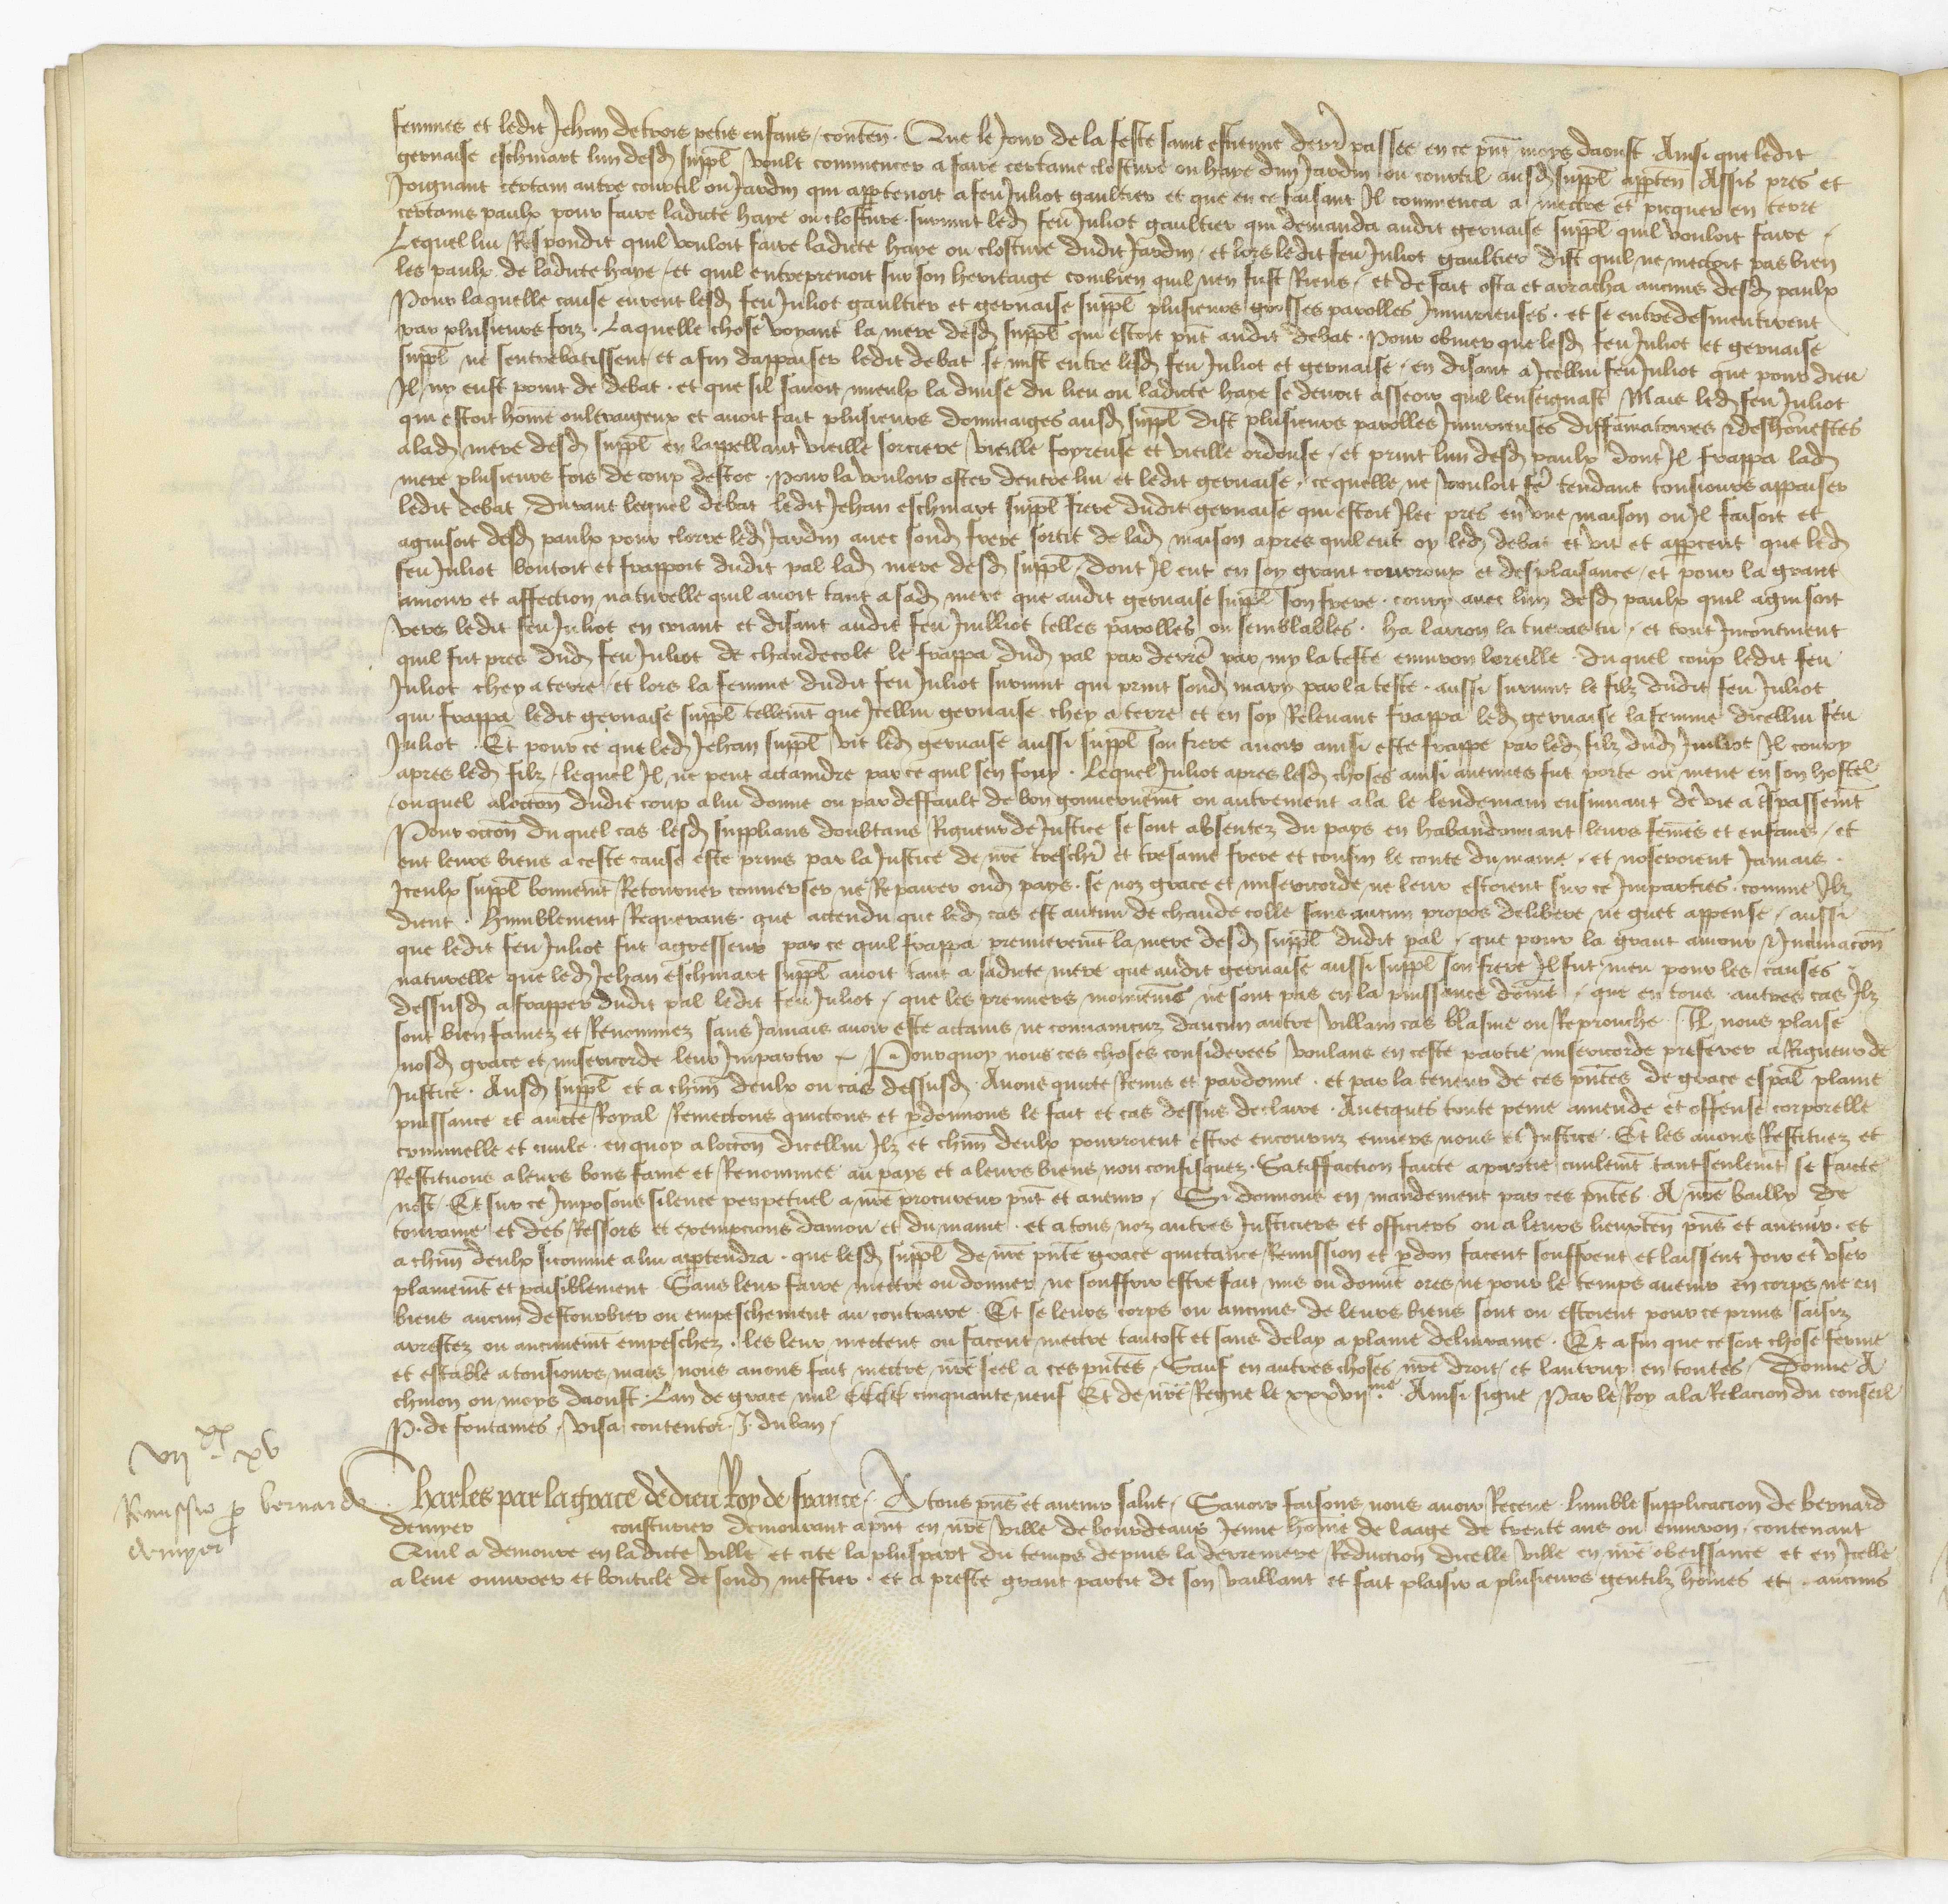 femmes et ledit Jehan de trois petis enfans / conten̄ . Que le Jour de la feste saint estienne derr̄ passee en ce pn̄t moys daoust . Ainsi que ledit
geruaise eschmart lun desd̄ suppl̄ voult commencer a faire certaine closture ou haye dun Jardin ou courtil ausd̄ suppl̄ apparten̄ Assis pres et
Joignant certain autre courtil ou Jardin qui appartenoit a feu Juliot gaultier et que en ce faisant Il commenca a mectre et picquer en terre
certains paulx pour faire ladicte haye ou closture . suruint led̄ feu Juliot gaultier qui demanda audit geruaise suppl̄ quil vouloit faire /
Lequel lui Respondit quil vouloit faire ladicte haye ou closture dudit Jardin / et lors ledit feu Juliot gaultier dist quil ne mectoit pas bien
les paulx de ladicte haye / et quil entreprenoit sur son heritaige combien quil nen fust Riens / et de fait osta et arracha aucuns desd̄ paulx
Pour laquelle cause eurent lesd̄ feu Juliot gaultier et geruaise suppl̄ plusieurs grosses parolles Iniurieuses . et se entredesmentirent
par plusieurs foiz . Laquelle chose voyant la mere desd̄ suppl̄ qui estoit pn̄t audit debat . Pour obuier que lesd̄ feu Juliot et geruaise
suppl̄ ne sentrebatissent et afin dappaiser ledit debat se mist entre lesd̄ feu Juliot et geruaise / en disant a Icellui feu Juliot que pour dieu
Il ny eust point de debat . et que sil sauoit mieulx la diuise du lieu ou ladicte haye se deuoit asseoir quil lenseignast Mais led̄ feu Juliot
qui estoit hom̄e oultraigeux et auoit fait plusieurs dommaiges ausd̄ suppl̄ dist plusieurs parolles Iniurieuses diffamatoires & deshonnestes
a lad̄ mere desd̄ suppl̄ en lappellant vieille sorciere vieille foyreuse et vieille ordouse / et print lun desd̄ paulx dont Il frappa lad̄
mere plusieurs fois de coup destoc . pour la vouloir oster dentre lui et ledit geruaise / ce quelle ne vouloit fē tendant tousiours appaiser
ledit debat / Durant lequel debat ledit Jehan eschmart suppl̄ frere dudit geruaise qui estoit Ilec pres en vne maison ou Il faisoit et
aguisoit desd̄ paulx pour clorre led̄ Jardin auec sond̄ frere sortit de lad̄ maison apres quil eut oy led̄ debat et vit et apperceut que led̄
feu Juliot boutoit et frappoit dudit pal lad̄ mere desd̄ suppl̄ / Dont Il eut en soy grant courroux et desplaisance / et pour la grant
amour et affection naturelle quil auoit tant a sad̄ mere que audit geruaise suppl̄ son frere . coury auec lun desd̄ paulx quil aguisoit
vers ledit feu Juliot en criant et disant audit feu Juilliot telles parolles ou semblables . ha larron la tueras tu / et tout Incontinent
quil fut pres dud̄ feu Juliot de chaudecole le frappa dud̄ pal par derrē par my la teste enuiron loreille . Duquel coup ledit feu
Juliot chey a terre / et lors la femme dudit feu Juliot suruint qui print sond̄ mary par la teste . aussi suruint le filz dudit feu Juliot
qui frappa ledit geruaise suppl̄ tellem̄t que Icellui geruaise chey a terre et en soy Releuant frappa led̄ geruaise la femme dicellui feu
Juliot . Et pour ce que led̄ Jehan suppl̄ vit led̄ geruaise aussi suppl̄ son frere auoir ainsi este frappe par led̄ filz dud̄ Juiliot Il coury
apres led̄ filz / lequel Il ne peut actaindre par ce quil sen fouy . Lequel Juliot apres lesd̄ choses ainsi auenues fut porte ou mene en son hostel
ouquel a loccōn dudit coup a lui donne ou par deffault de bon gouuernem̄t ou autrement ala le lendemain ensuiuant de vie a t̄spassem̄t
Pour occōn duquel cas lesd̄ supplians doubtans Rigueur de Justice se sont absentez du pays en habandonnant leurs fem̄es et enfans / et
ont leurs biens a ceste cause este prins par la Justice de nr̄e treschr̄ et tresame frere et cousin le conte du maine / et noseroient Iamais .
Iceulx suppl̄ bonnem̄t Retourner conuerser ne Repairer oud̄ pays . se noz grace et misericorde ne leur estoient sur ce Imparties . comme Ilz
dient . humblement Requerans . que actendu que led̄ cas est auenu de chaude colle sans aucun propos delibere ne guet appense / aussi
que ledit feu Juliot fut agresseur par ce quil frappa premierem̄t la mere desd̄ suppl̄ dudit pal / que pour la grant amour & Inclinacōn
naturelle que led̄ Jehan eschmart suppl̄ auoit tant a sadicte mere que audit geruaise aussi suppl̄ son frere Il fut meu pour les causes
dessusd̄ a frapper dudit pal ledit feu Juliot / que les premiers mouuem̄s ne sont pas en la puissance dom̄e / que en tous autres cas Ilz
sont bien famez et Renommez sans Iamais auoir este actains ne conuaincuz daucun autre villain cas blasme ou Reprouche . Il nous plaise
nosd̄ grace et misericorde leur Impartir ~ Pourquoy nous ces choses considerees voulans en ceste partie misericorde preferer a Rigueur de
Justice . Ausd̄ suppl̄ et a chūn deulx ou cas dessusd̄ . Auons quicte Remis et pardonne . et par la teneur de ces pn̄tes de grace esp̄al plaine
puissance et auct̄e Royal Remectons quictons et p̄donnons le fait et cas dessus declaire . Auecques toute peine amende et offense corporelle
criminelle et ciuile . en quoy a loccōn dicellui Ilz et chūn deulx pourroient estre encouruz enuers nous et Justice . Et les auons Restituez et
Restituons a leurs bons fame et Renommee au pays et a leurs biens non confisquez . Satiffaction faicte a partie ciuilem̄t tant seulem̄t se faicte
nest . Et sur ce Imposons silence perpetuel a nr̄e procureur pn̄t et auenir / Si donnons en mandement par ces pn̄tes A nr̄e bailly de
touraine et des Ressors et exempcions daniou et du maine . et a tous noz autres Justiciers et officiers ou a leurs lieuxten̄ pn̄s et auenir . et
a chūn deulx sicomme a lui appartendra . que lesd̄ suppl̄ de nr̄e pn̄te grace quictance Remission et p̄don facent seuffrent et laissent Joir et vser
plainem̄t et paisiblement . Sans leur faire mectre ou donner ne souffrir estre fait mis ou donne ores ne pour le temps auenir en corps ne en
biens aucun destourbier ou empeschement au contraire . Et se leurs corps ou aucuns de leurs biens sont ou estoient pour ce prins saisiz
arrestez ou aucunem̄t empeschez . les leur mectent ou facent mectre tantost et sans delay a plaine deliurance . Et afin que ce soit chose ferme
et estable a tousioursmais nous auons fait mectre nr̄e seel a ces pn̄tes . Sauf en autres choses nr̄e droit / et lautruy en toutes / Donne A
chinon ou moys daoust . Lan de grace mil CCCC cinquante neuf Et de nr̄e Regne le xxxvii.me Ainsi signe Par le Roy a la Relacion du conseil
P. de fontaines / visa contentor . J. duban /
vii xx xv
Remissio p̄ bernardo
demyer
Charles par la grace de dieu Roy de france / A tous pn̄s et auenir salut / Sauoir faisons nous auoir Receue . Lumble supplicacion de bernard
demyer cousturier demourant a pn̄t en nr̄e ville de bourdeaux Jeune hom̄e de laage de trente ans ou enuiron / contenant
Quil a demoure en ladicte ville et cite la pluspart du temps depuis la derreniere Reduction dicelle ville en nr̄e obeissance et en Icelle
a leue ouurouer et bouticle de sond̄ mestier . et a preste grant partie de son vaillant et fait plaisir a plusieurs gentilz hom̄es et aucuns